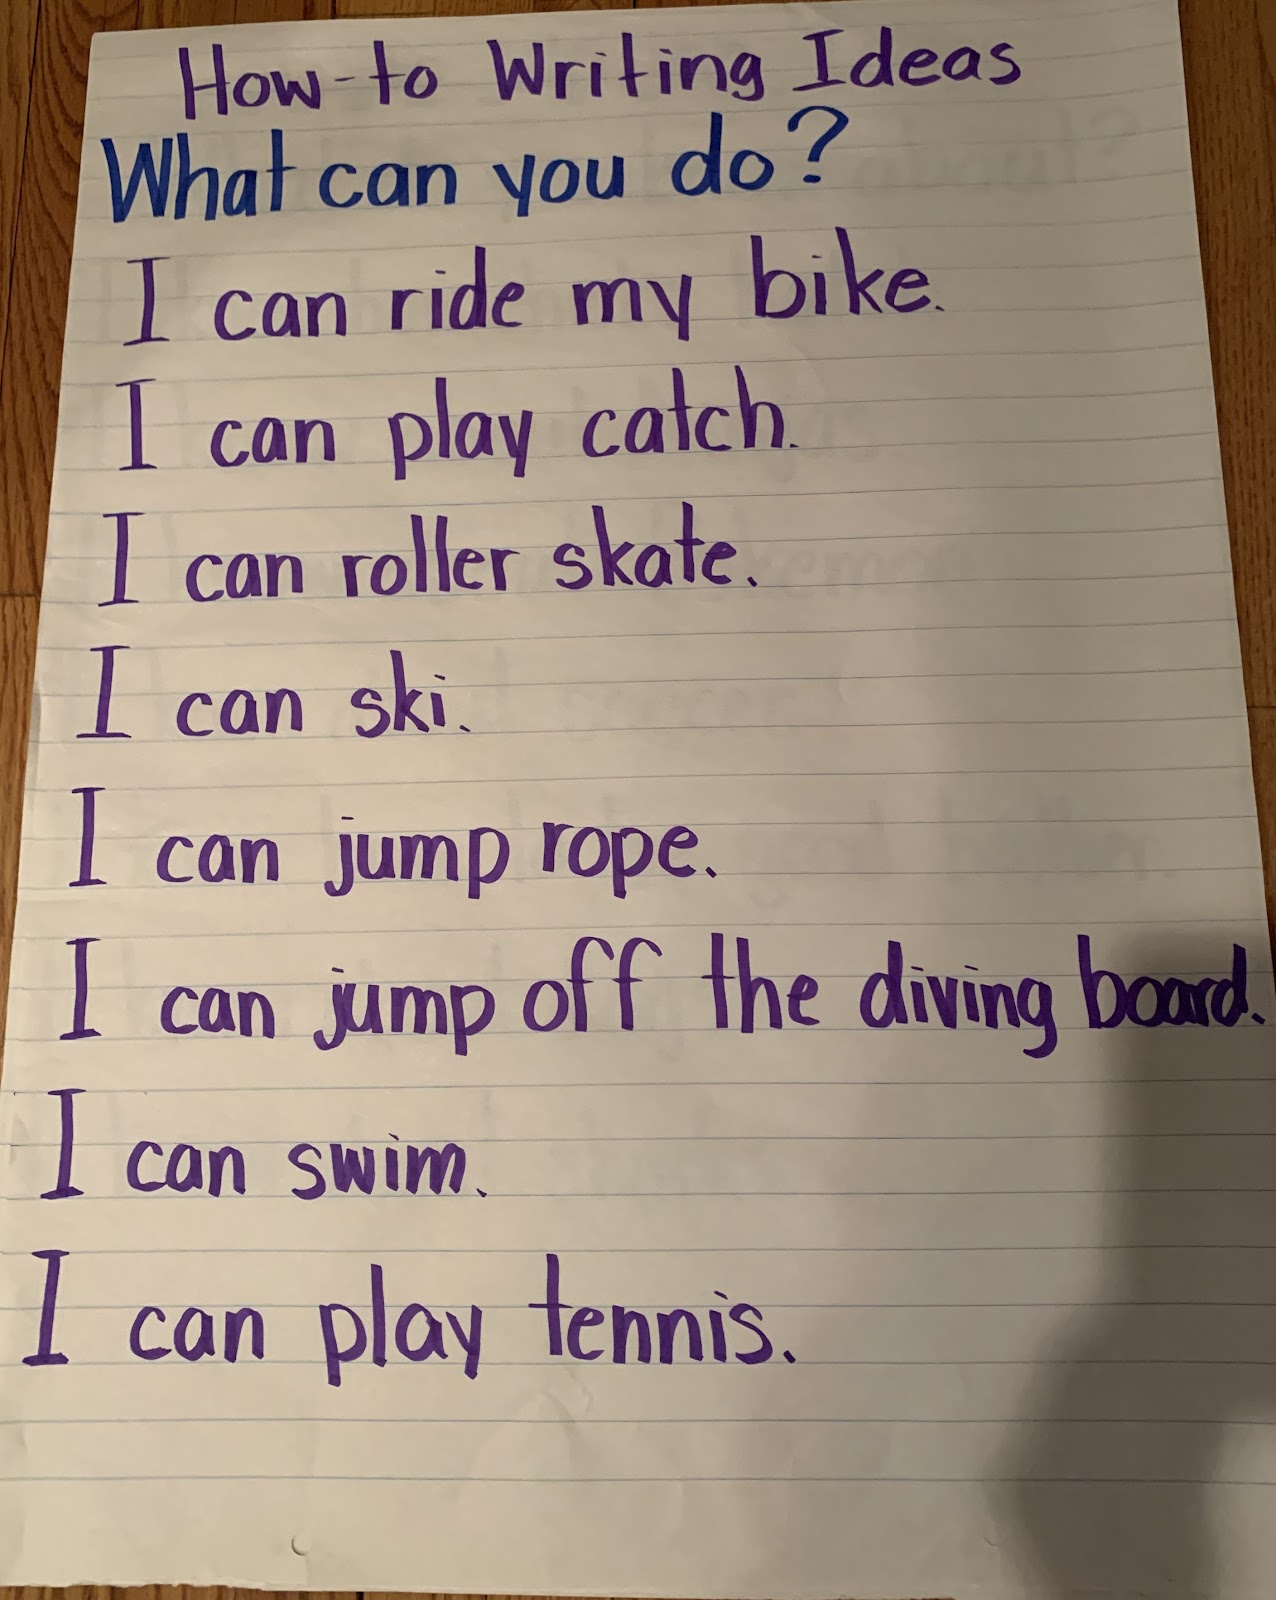 How-to Writing Ideas
What can you do?
I can ride my bike.
I can play catch.
I can roller skate.
I can ski.
I can jump rope.
I can jump off the diving board.
I can swim.
I can play tennis.